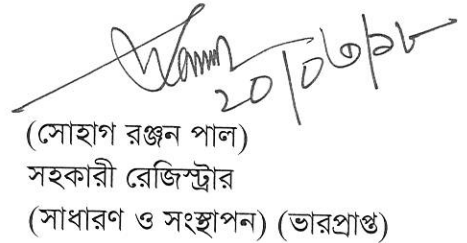 ২০/০৬/১৮
(সোহাগ রঞ্জন পাল)
সহকারী রেজিস্ট্রার
(সাধারণ ও সংস্থাপন) (ভারপ্রাপ্ত)